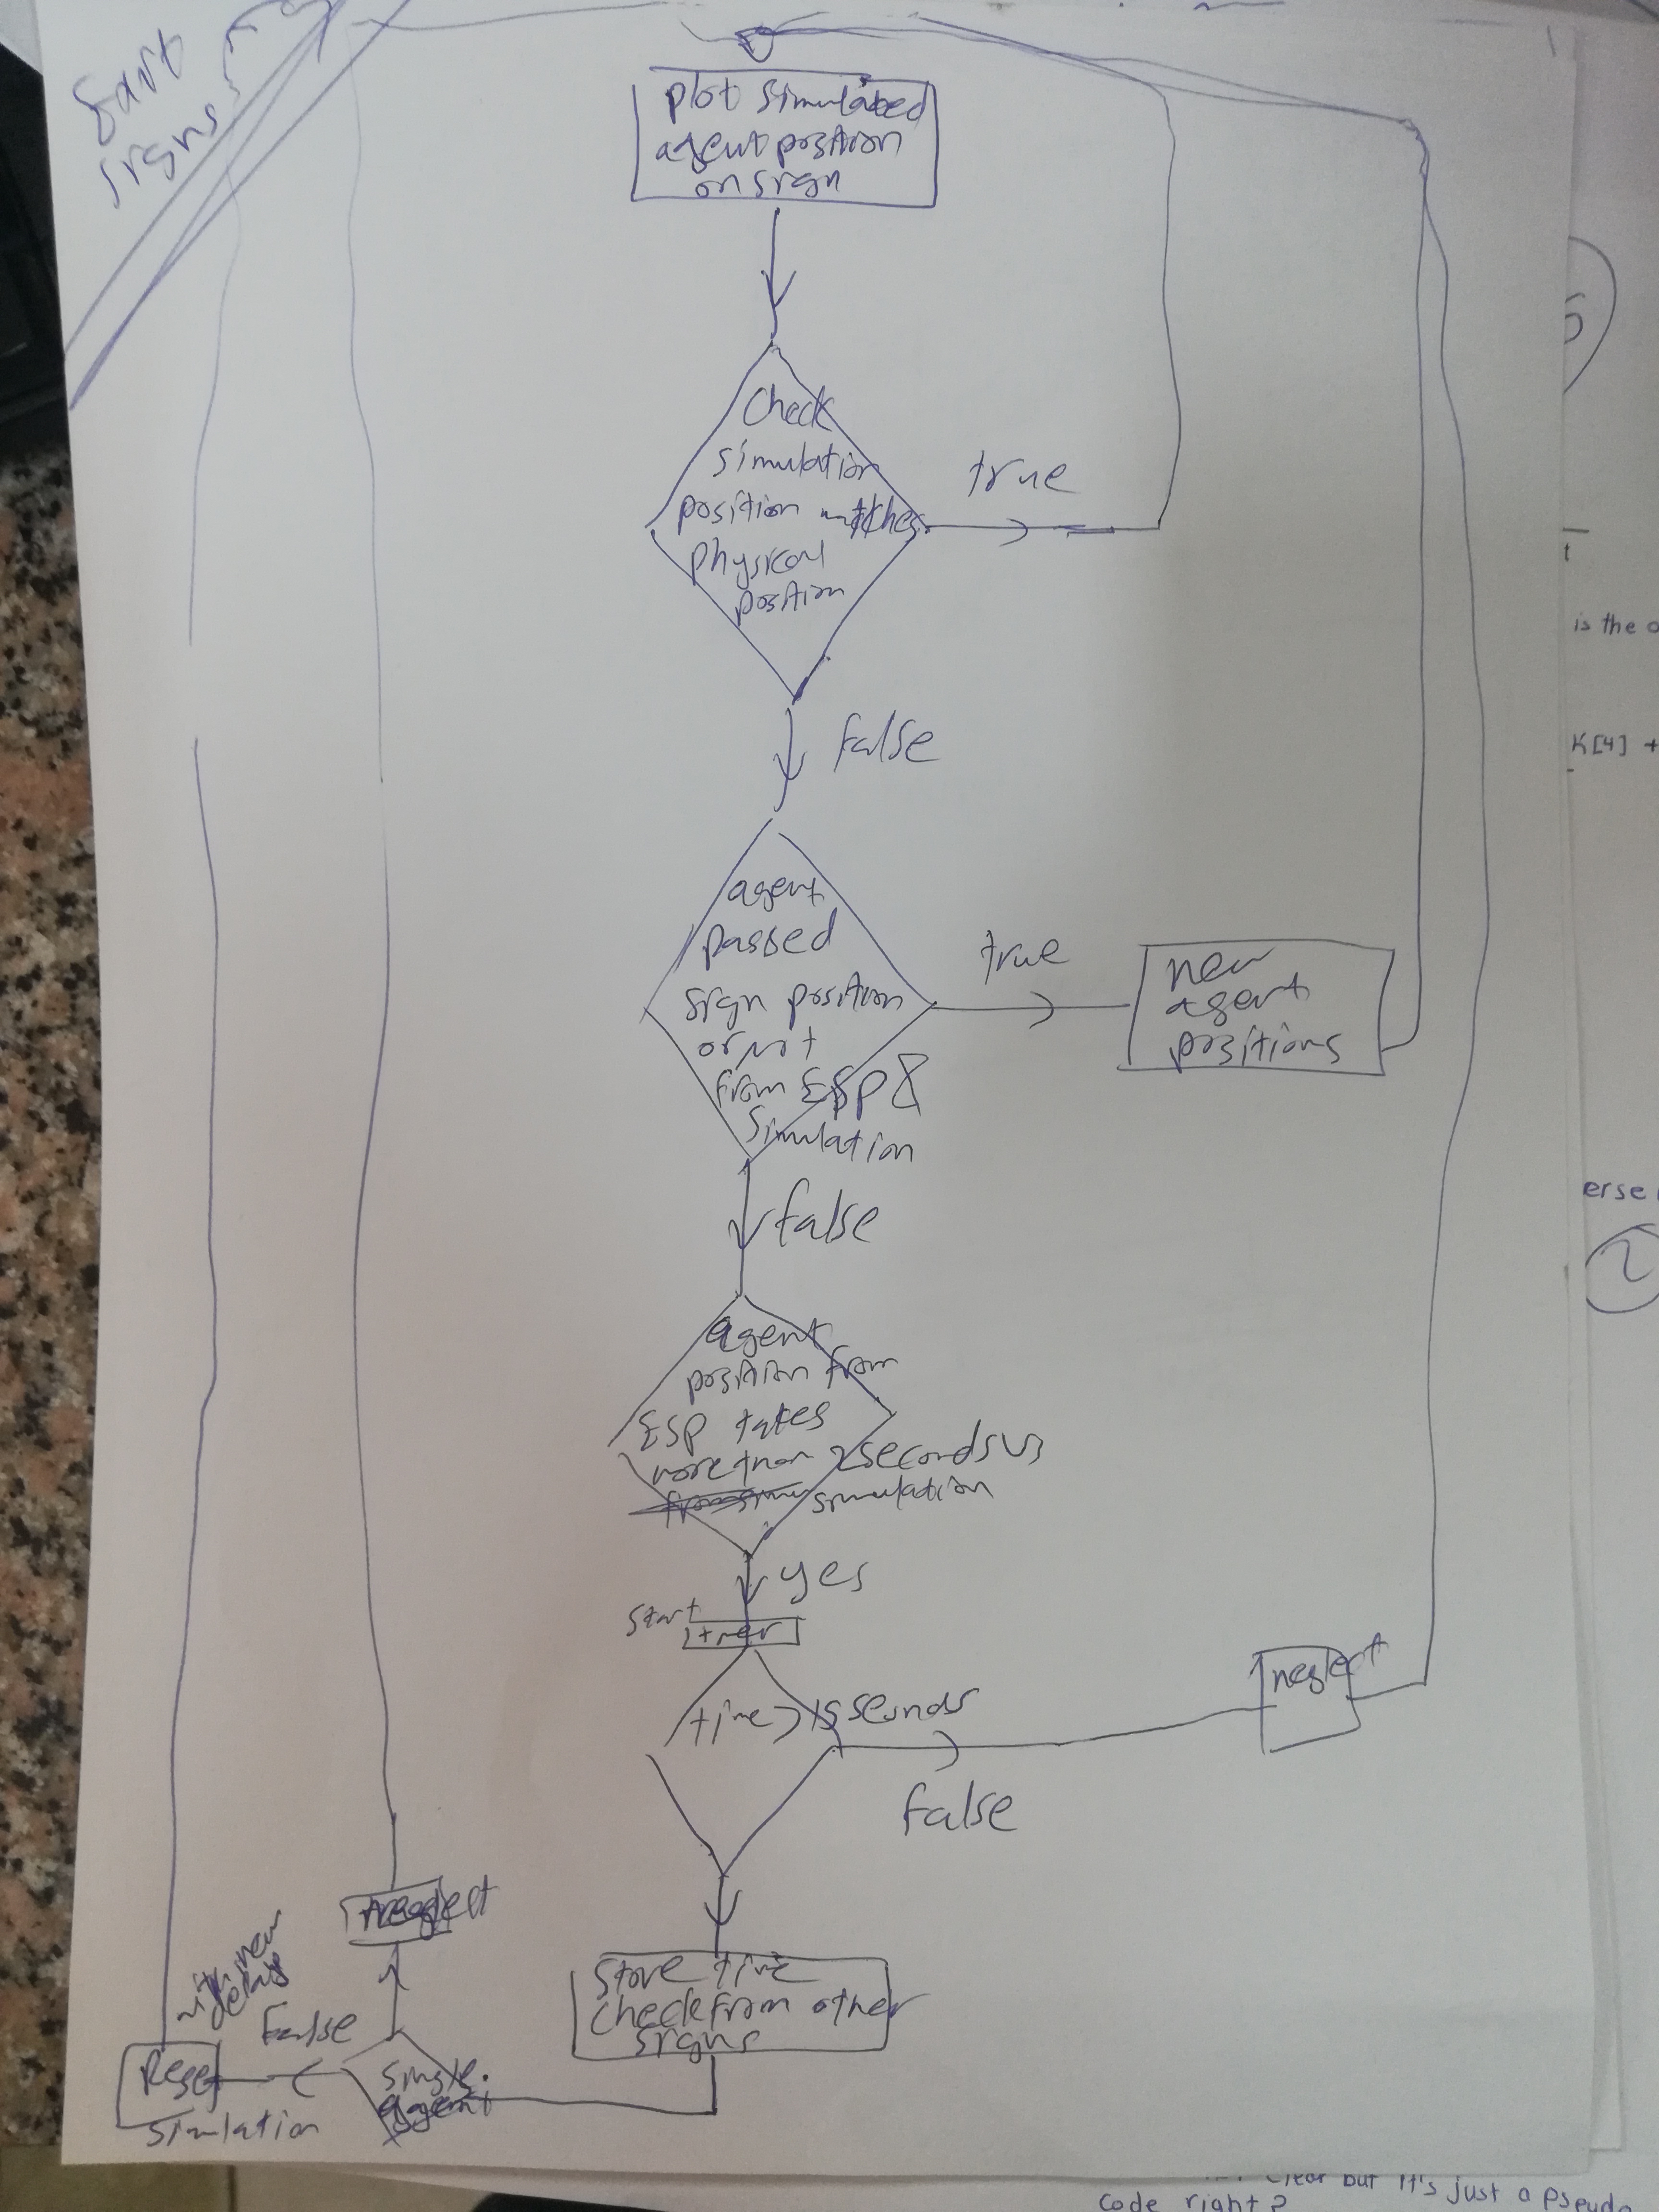 signs
plot simulated
agent position
on sign
Check
simulation
position matches
physical
position
true
false
agent
passed
sign position
or not
from ESP &
simulation
true
new
agent
positions
false
agent
position from
ESP takes
more than 2seconds vs
simulation
yes
start
timer
time > 15 seconds
false
neglect
store time
check from other
signs
single
agent
neglect
False
with new
delays
Reset
simulation
5
t
is the o
K[4] +
erse
2
clear but it's just a pseudo
code right?